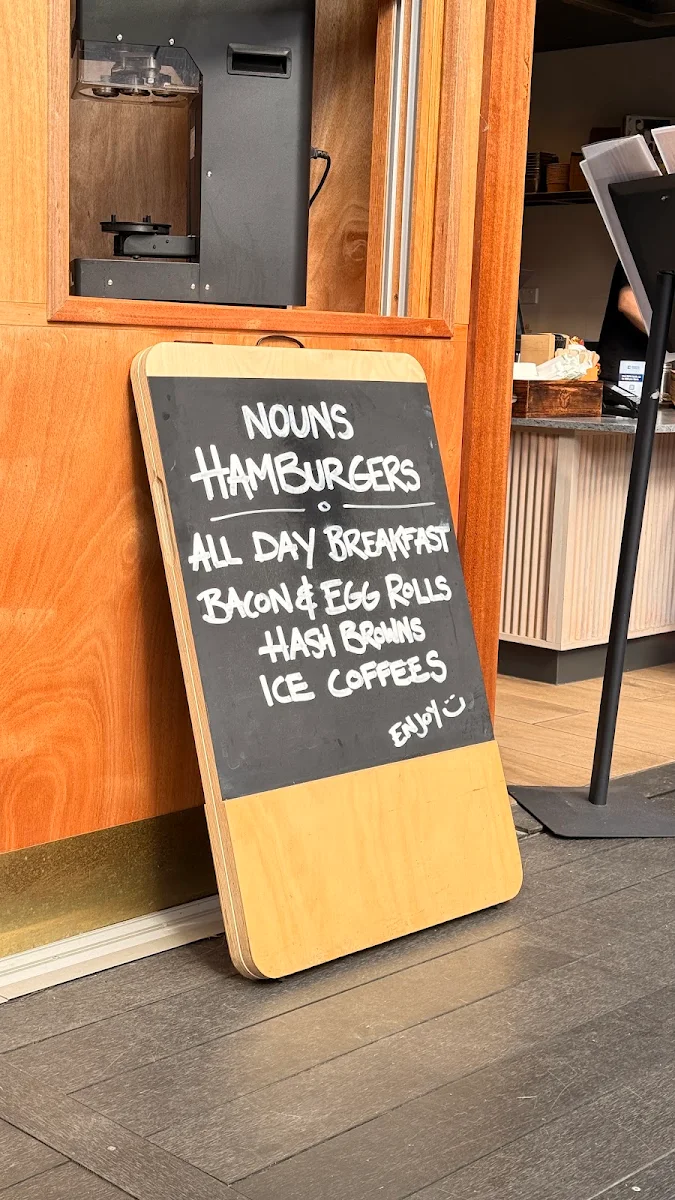 NOUNS
HAMBURGERS
ALL DAY BREAKFAST
BACON & EGG ROLLS
HASH BROWNS
ICE COFFEES
ENJOY